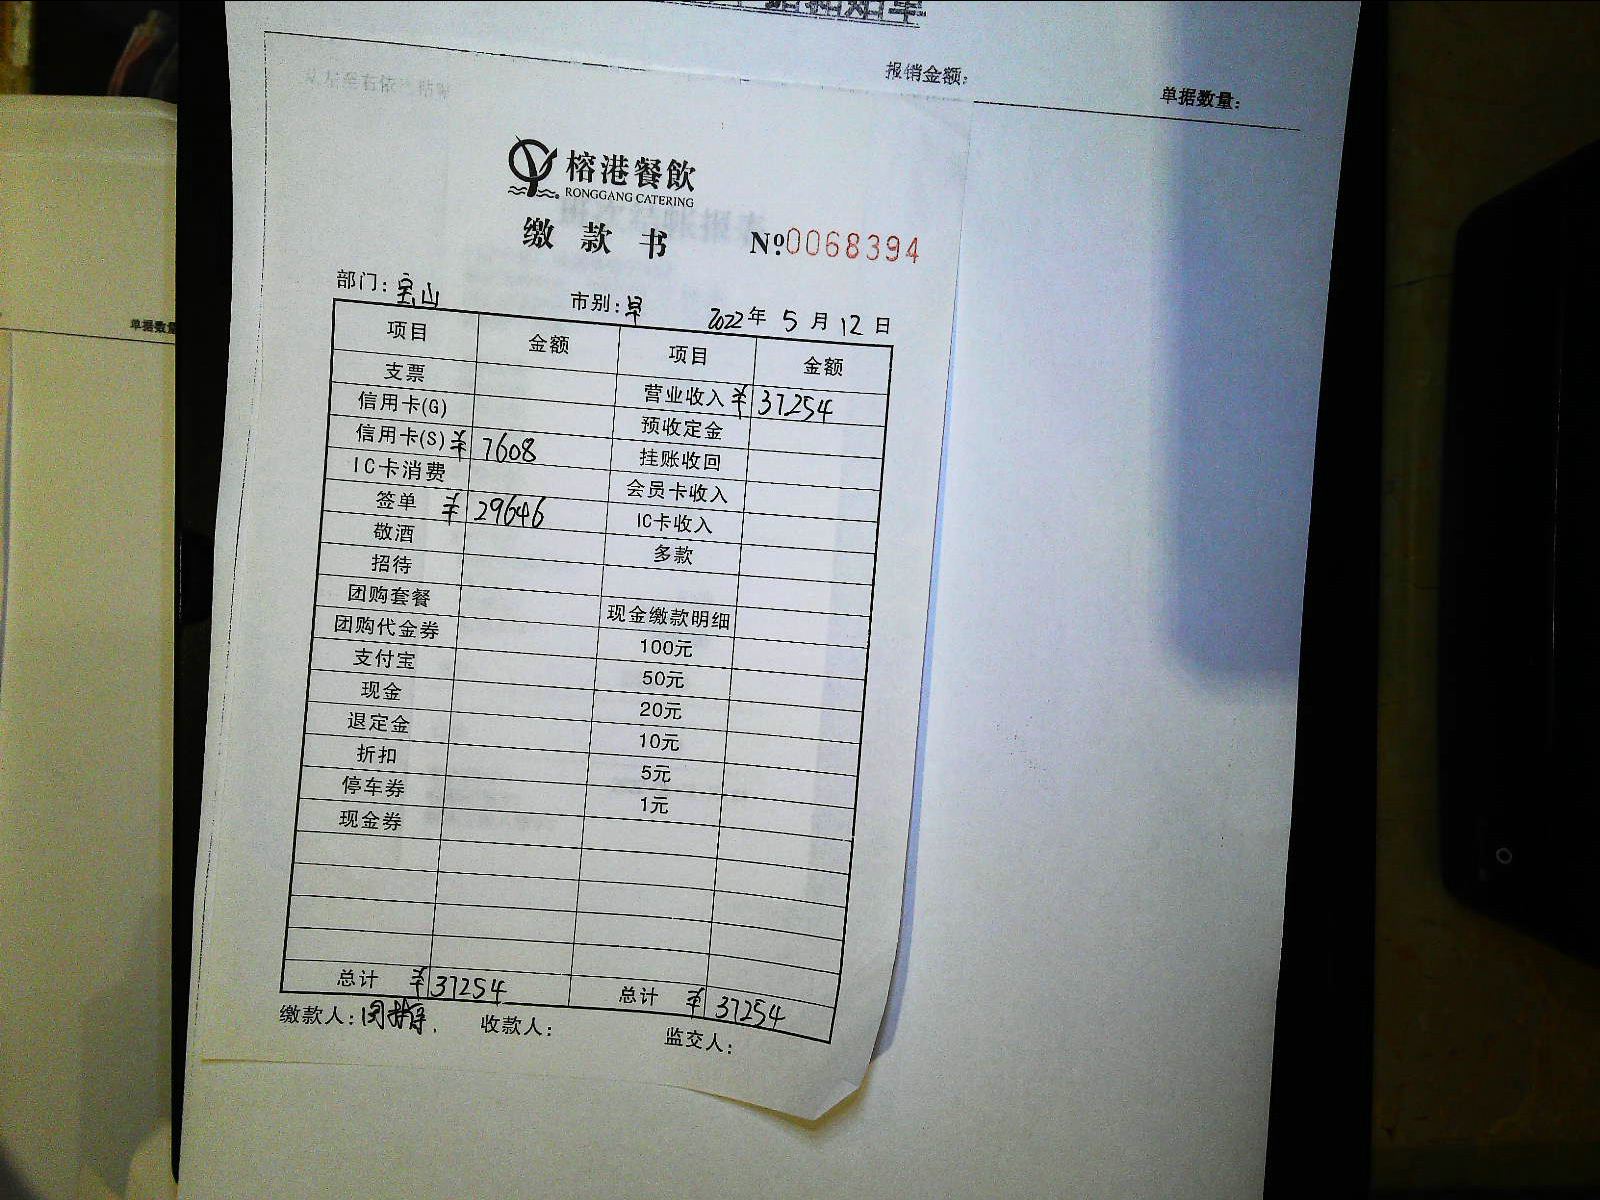 报销金额:
单据数量:
单据数量
榕港餐飲
RONGGANG CATERING
缴款书 №0068394
部门:宝山 市别:早 2022年5月12日
项目 金额 项目 金额
支票 营业收入 ¥37254
信用卡(G) 预收定金
信用卡(S) ¥7608 挂账收回
IC卡消费 会员卡收入
签单 ¥29646 IC卡收入
敬酒 多款
招待
团购套餐 现金缴款明细
团购代金券 100元
支付宝 50元
现金 20元
退定金 10元
折扣 5元
停车券 1元
现金券
总计 ¥37254 总计 ¥37254
缴款人: 收款人: 监交人: